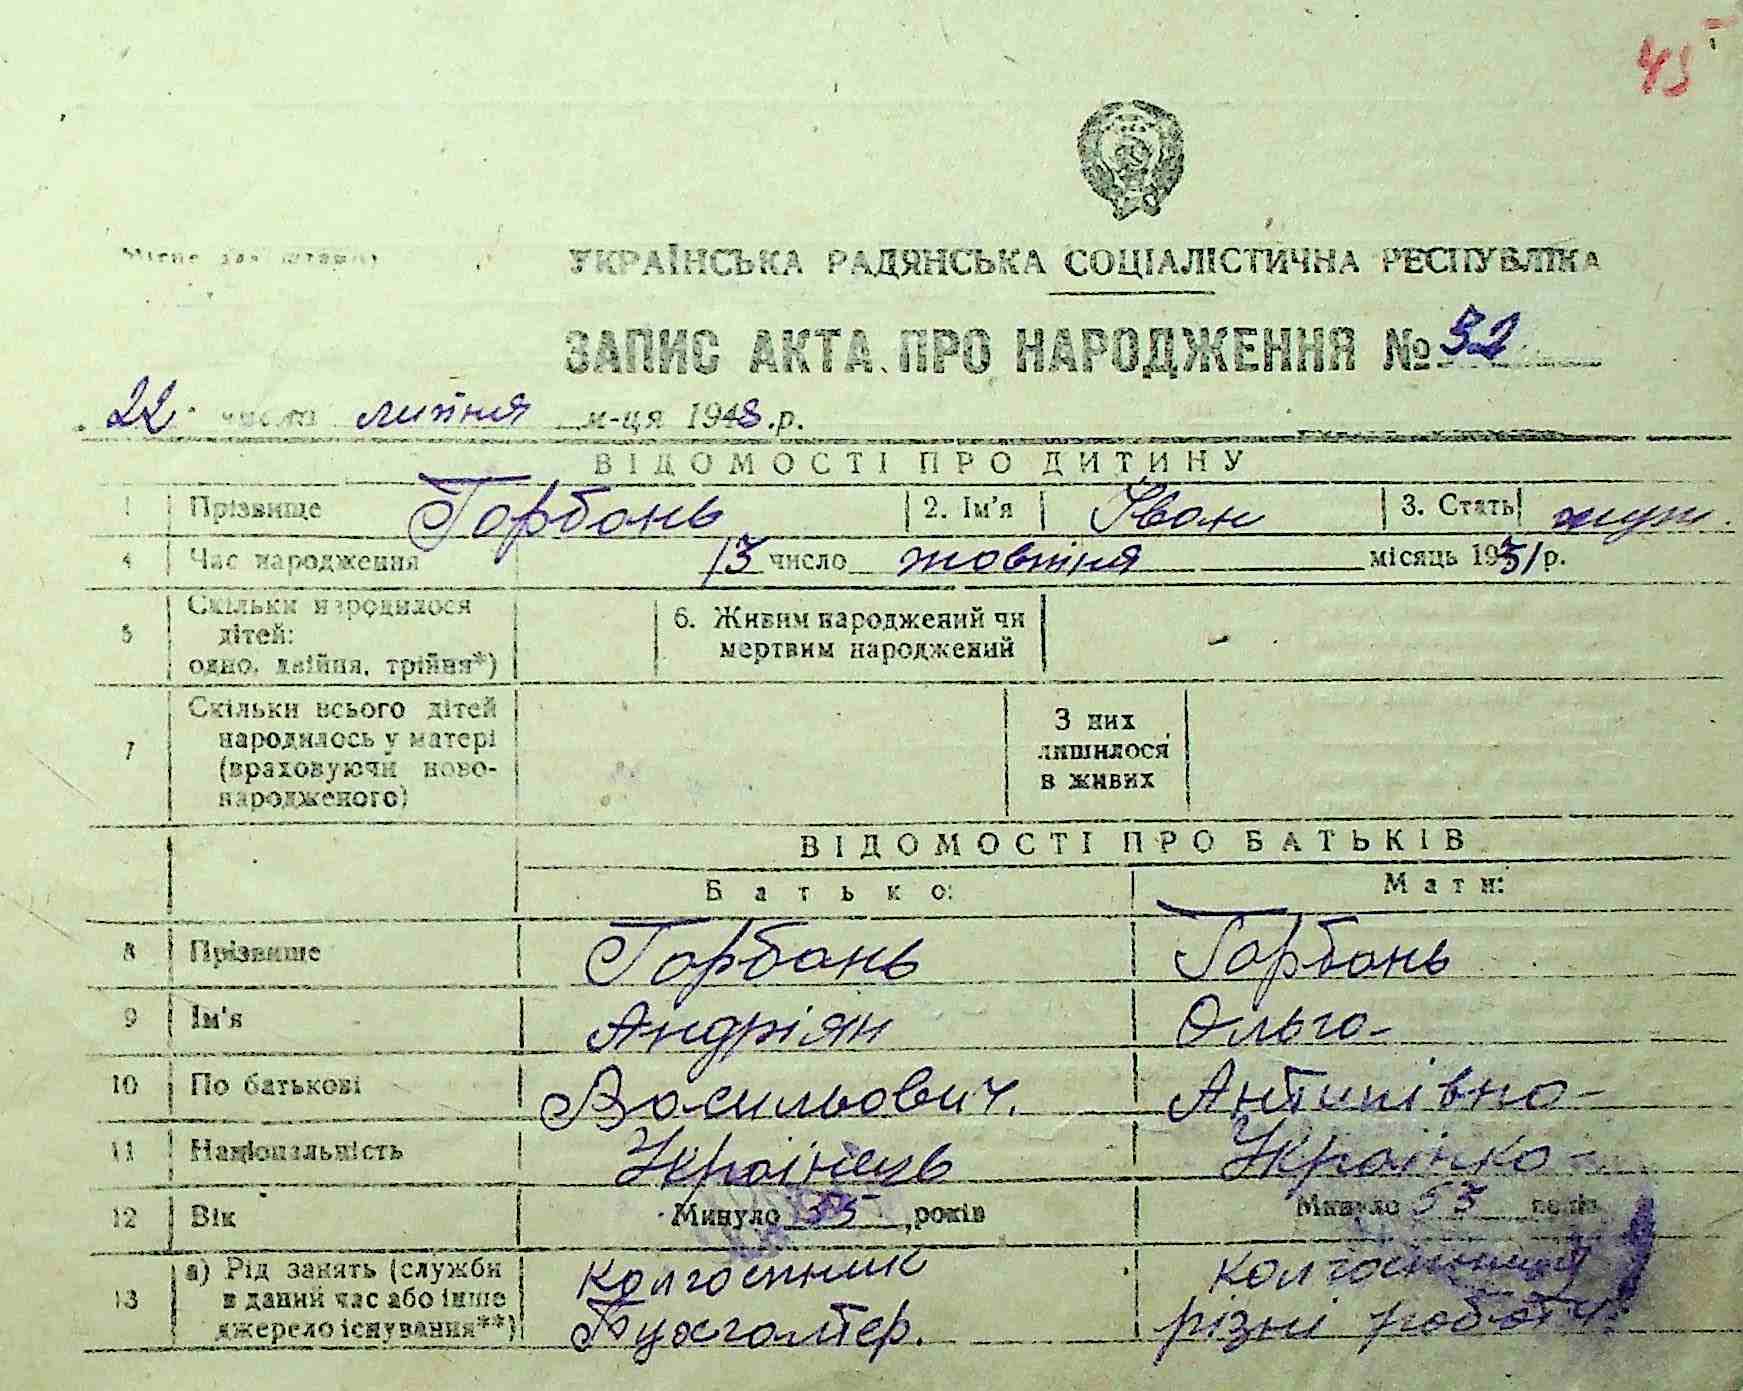 45
УКРАЇНСЬКА РАДЯНСЬКА СОЦІАЛІСТИЧНА РЕСПУБЛІКА
ЗАПИС АКТА ПРО НАРОДЖЕННЯ № 52
22 числа липня м-ця 1948 .р.
ВІДОМОСТІ ПРО ДИТИНУ
1 Прізвище Горбань 2. Ім'я Іван 3. Стать муж.
4 Час народження 13 число жовтня місяць 1931 р.
5 Скільки народилося дітей: одно, двійня, трійня*) 6. Живим народжений чи мертвим народжений -
7 Скільки всього дітей народилось у матері (враховуючи ново-народженого) З них лишилося в живих
ВІДОМОСТІ ПРО БАТЬКІВ
Батько: Мати:
8 Прізвище Горбань Горбань
9 Ім'я Андріян Ольга
10 По батькові Васильович. Антипівна
11 Національність Українець Українка
12 Вік Минуло 55 ,років Минуло 53 років
13 а) Рід занять (служби в даний час або інше джерело існування**) колгоспник Бухгалтер. колгоспниця різні роботи.